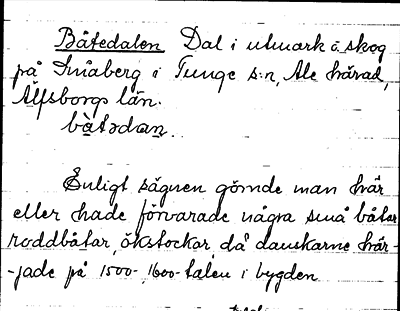 Båtedalen Dal i utmark å skog
på Småberg i Tunge s:n, Ale härad,
Älfsborgs län.
bàtədan.
Enligt sägnen gömde man här
eller hade förvarade några små båtar
roddbåtar, ökstockar, då danskarne här-
-jade på 1500-, 1600-talen i bygden